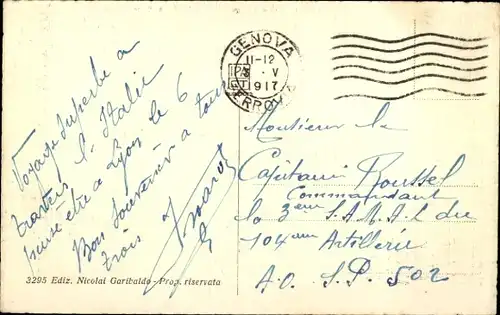 Voyage superbe a
travers l'Italie
pense être a Lyon le 6
Bon souvenir a tous
trois
GENOVA
11-12
V
1917
FERROVIA
Monsieur le
Capitaine Roussel
Commandant
la 3eme S.A.M.A.L du
104eme Artillerie
A.O. S.P. 502
3295 Ediz. Nicolai Garibaldo - Prop. riservata